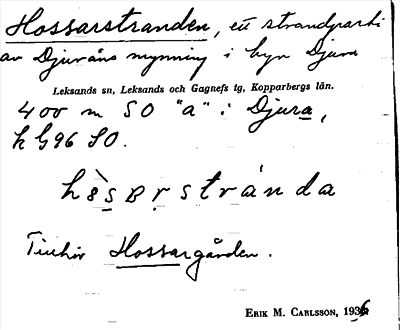 Hossarstranden, ett strandparti
av Djuråns mynning i byn Djura
Leksands sn, Leksands och Gagnefs tg, Kopparbergs län.
400 m SO "a" i Djura,
k G96 SO.
Tillhör Hossargården.
ERIK M. CARLSSON, 1936